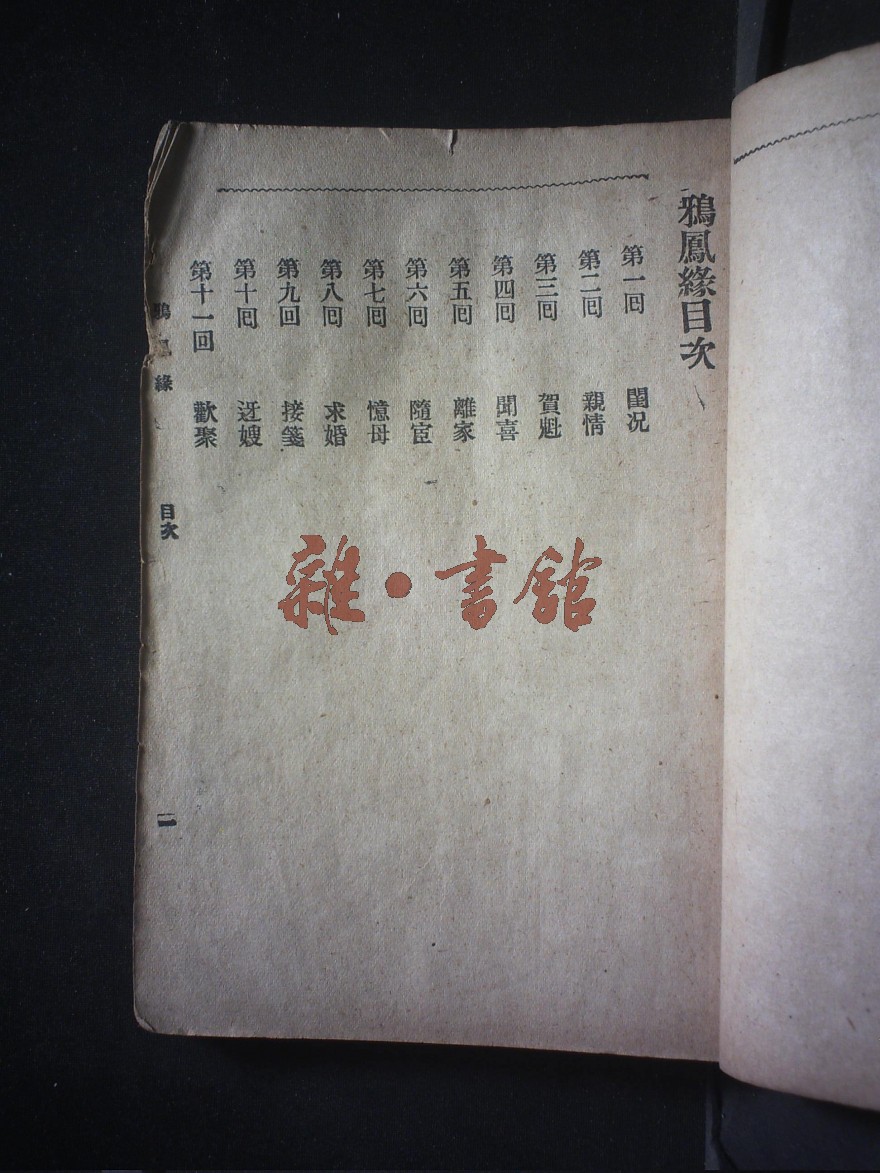 鴉鳳緣目次
第一回 閨况
第二回 親情
第三回 賀魁
第四回 聞喜
第五回 離家
第六回 隨宦
第七回 憶母
第八回 求婚
第九回 接箋
第十回 迓嫂
第十一回 歡聚
緣 目次
雜·書館